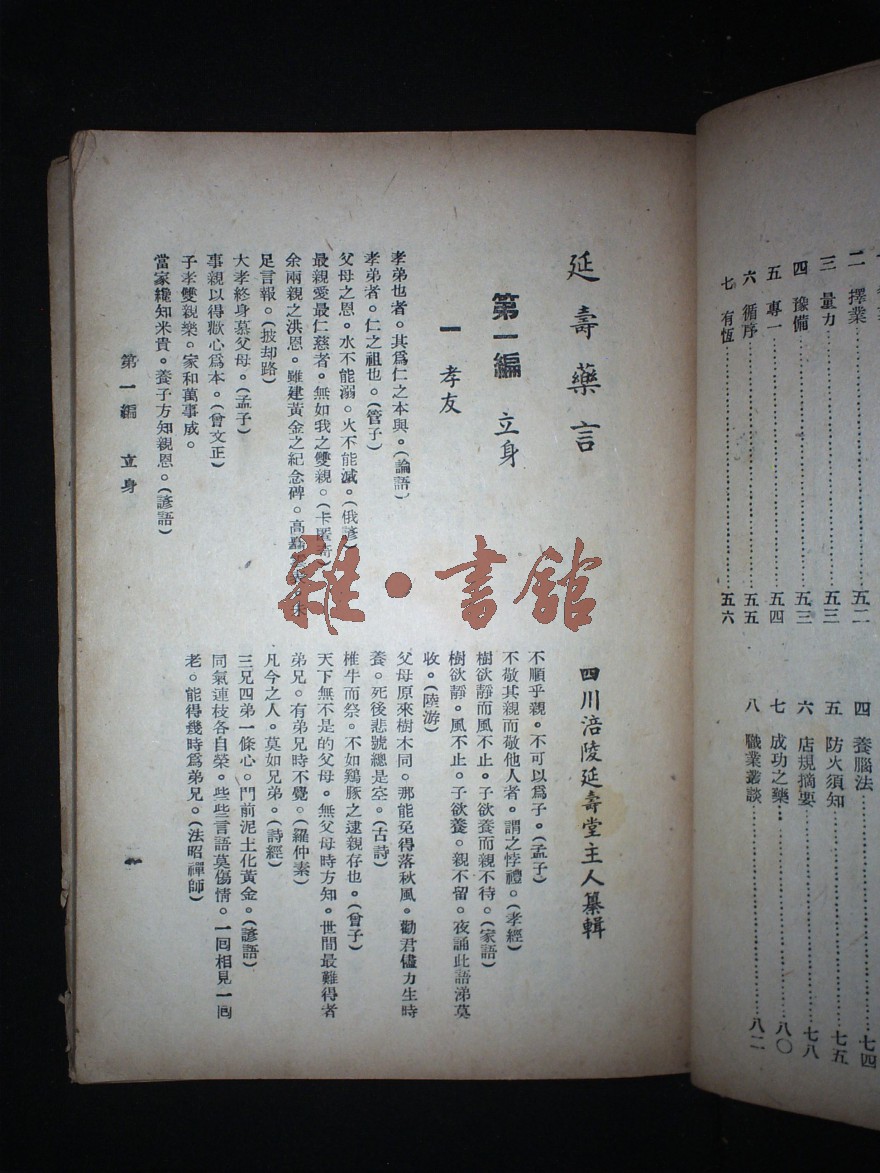 二 擇業………五二
三 量力………五三
四 豫備………五三
五 專一………五四
六 循序………五五
七 有恆………五六
四 養腦法………七四
五 防火須知………七五
六 店規摘要………七八
七 成功之藥………八〇
八 職業叢談………八二
延壽藥言
四川涪陵延壽堂主人纂輯
第一編 立身
一 孝友
孝弟也者。其爲仁之本與。(論語)
孝弟者。仁之祖也。(管子)
父母之恩。水不能溺。火不能滅。(俄諺)
最親愛最仁慈者。無如我之雙親。(卡匿奇)
余兩親之洪恩。雖建黃金之紀念碑。高
足言報。(披却路)
大孝終身慕父母。(孟子)
事親以得歡心爲本。(曾文正)
子孝雙親樂。家和萬事成。
當家纔知米貴。養子方知親恩。(諺語)
不順乎親。不可以爲子。(孟子)
不敬其親而敬他人者。謂之悖禮。(孝經)
樹欲靜而風不止。子欲養而親不待。(家語)
樹欲靜。風不止。子欲養。親不留。夜誦此語涕莫
收。(陸游)
父母原來樹木同。那能免得落秋風。勸君儘力生時
養。死後悲號總是空。(古詩)
椎牛而祭。不如鷄豚之逮親存也。(曾子)
天下無不是的父母。無父母時方知。世間最難得者
弟兄。有弟兄時不覺。(羅仲素)
凡今之人。莫如兄弟。(詩經)
三兄四弟一條心。門前泥土化黃金。(諺語)
同氣連枝各自榮。些些言語莫傷情。一回相見一回
老。能得幾時爲弟兄。(法昭禪師)
第一編 立身
一
雜·書館